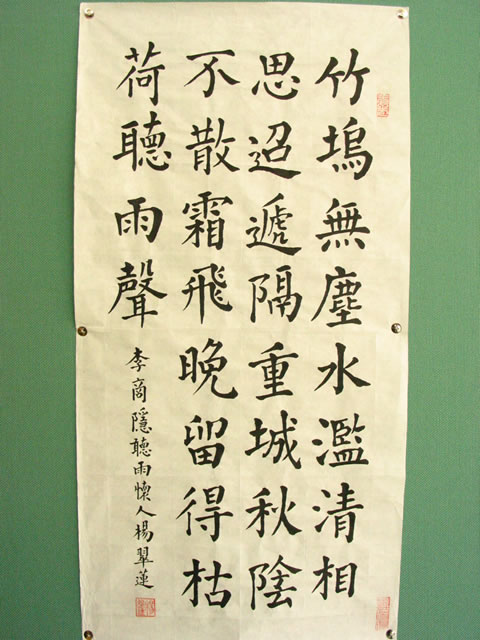 竹塢無塵水濫清相
思迢遞隔重城秋陰
不散霜飛晚留得枯
荷聽雨聲
李商隱聽雨懷人楊翠蓮